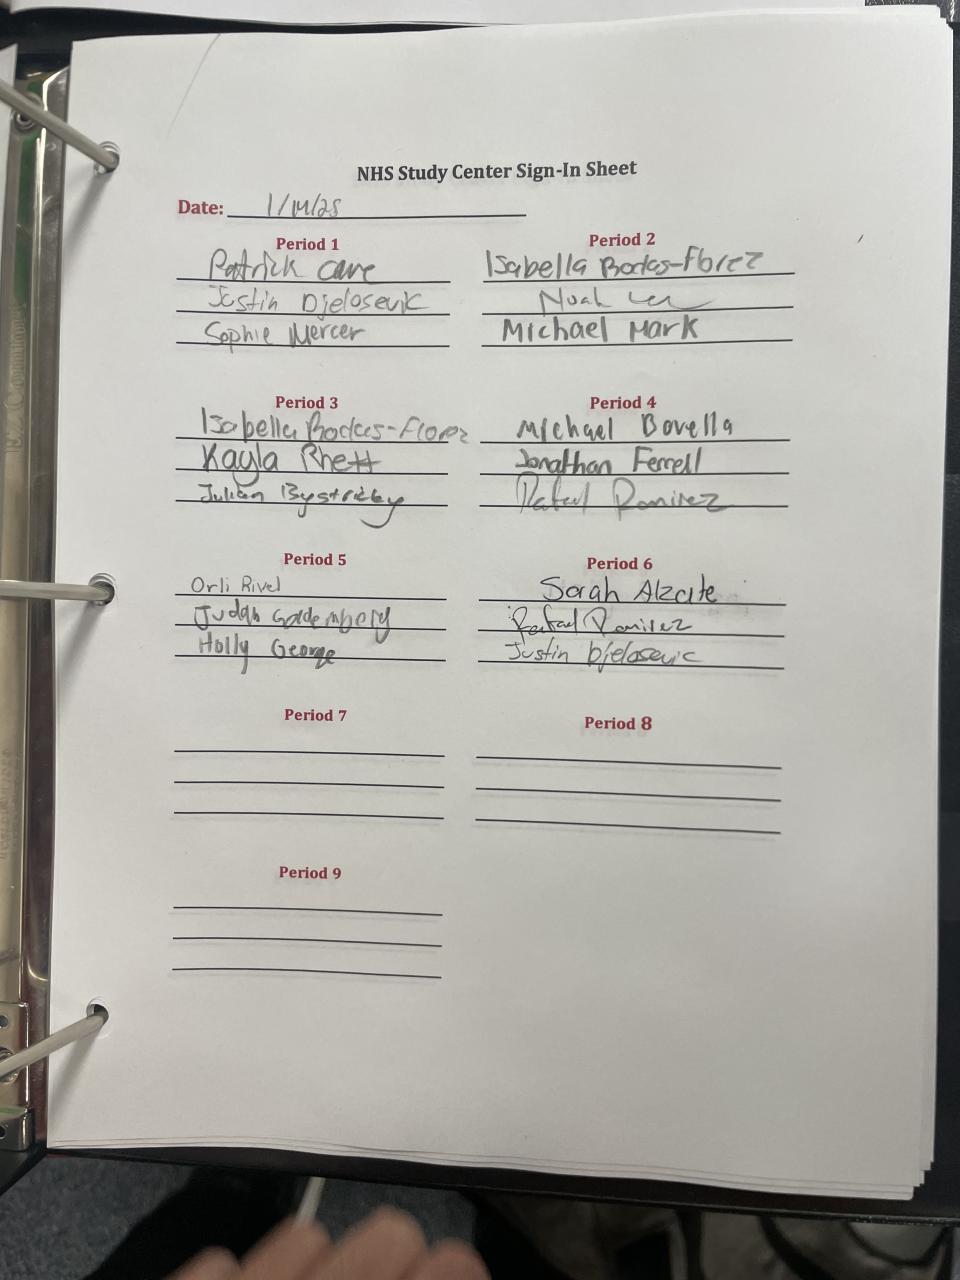 NHS Study Center Sign-In Sheet
Date: 1/14/25
Period 1
Patrick Cave
Justin Djelosevic
Sophie Mercer
Period 2
Isabella Rodas-Florez
Noah
Michael Mark
Period 3
Isabella Rodas-Florez
Kayla Rhett
Julian Bystricky
Period 4
Michael Bovella
Jonathan Ferrell
Rafael Ramirez
Period 5
Orli Rivel
Judah Goldenberg
Holly George
Period 6
Sarah Alzate
Rafael Ramirez
Justin Djelosevic
Period 7
Period 8
Period 9